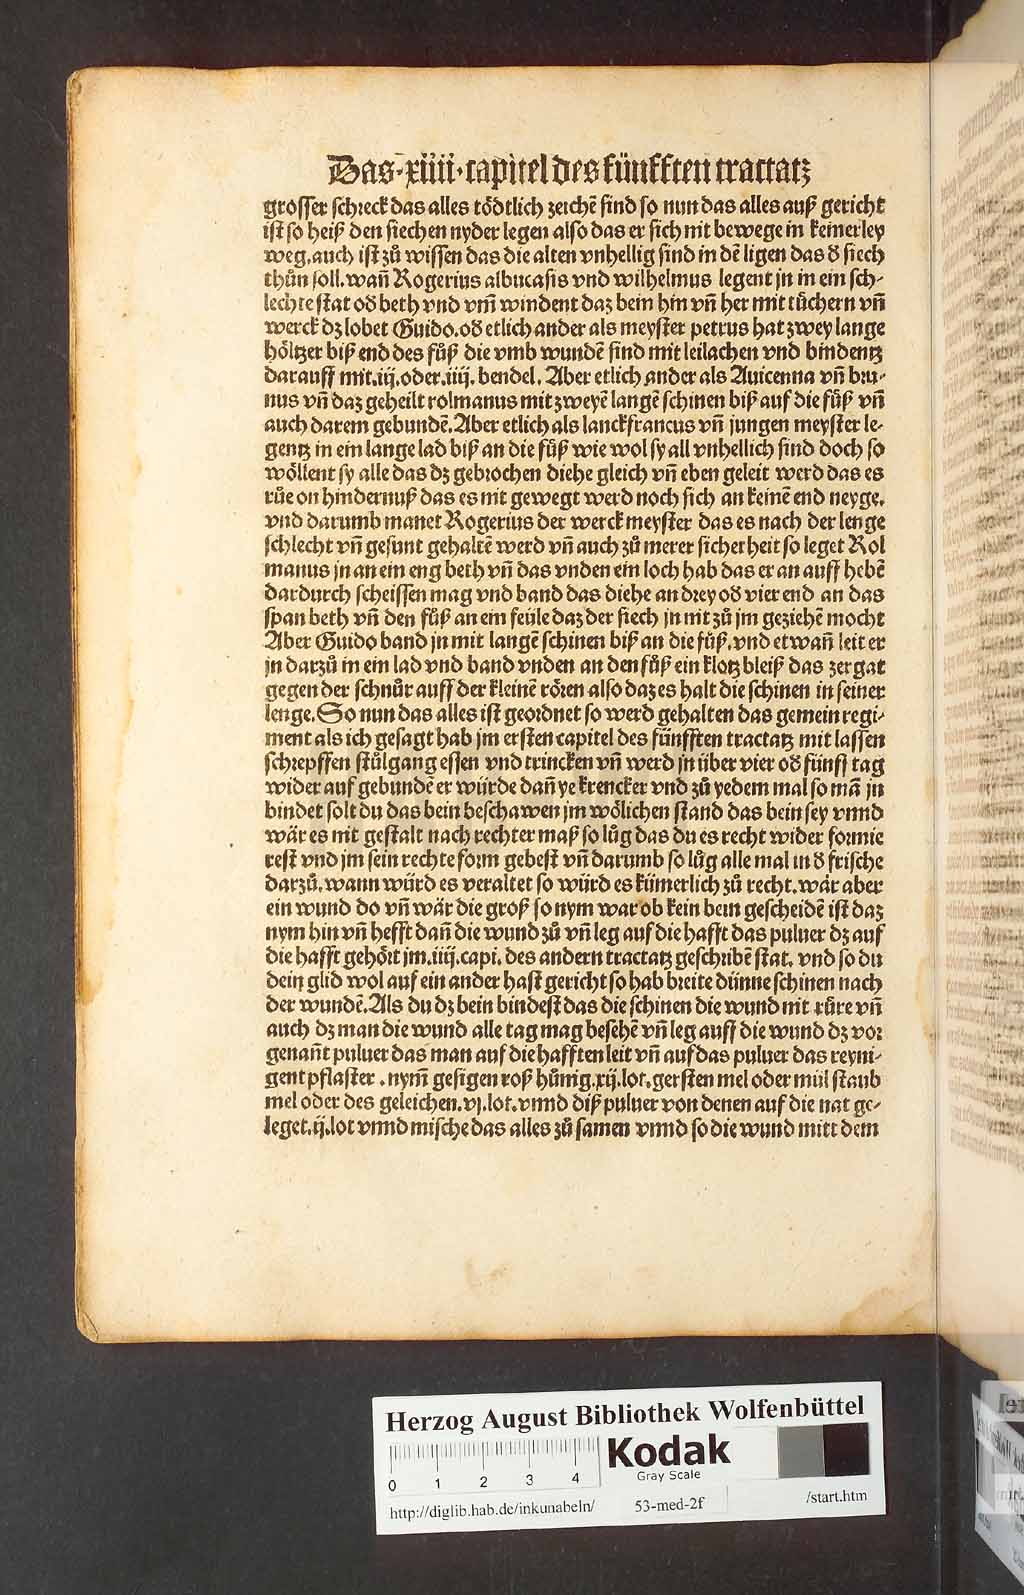 Das·xiiii·capitel des fünfften tractatz
grosser schreck das alles tödtlich zeichē sind so nun das alles auß gericht
ist so heiß den siechen nyder legen also das er sich nit bewege in keinerley
weg. auch ist zů wissen das die alten vnhellig sind in dē ligen das d̕ siech
thůn soll. wañ Rogerius albucasis vnd wilhelmus legent jn in ein sch-
lechte stat od̕ beth vnd vm̄ windent daz bein hin vñ her mit tůchern vñ
werck dz lobet Guido. od̕ etlich ander als meyster petrus hat zwey lange
höltzer biß end des fůß die vmb wundē sind mit leilachen vnd bindentz
darauff mit .iij. oder .iiij. bendel. Aber etlich ander als Auicenna vñ bru-
nus vñ daz geheilt rolmanus mit zweyē langē schinen biß auf die fůß vñ
auch darem gebundē. Aber etlich als lanckfrancus vñ jungen meyster le-
gentz in ein lange lad biß an die fůß wie wol sy all vnhellich sind doch so
wöllent sy alle das dz gebrochen diehe gleich vñ eben geleit werd das es
růe on hindernuß das es nit gewegt werd noch sich an keinē end neyge.
vnd darumb manet Rogerius der werck meyster das es nach der lenge
schlecht vñ gesunt gehaltē werd vñ auch zů merer sicherheit so leget Rol
manus jn an ein eng beth vñ das vnden ein loch hab das er an auff hebē
dardurch scheissen mag vnd band das diehe an drey od̕ vier end an das
span beth vñ den fůß an ein feüle daz der siech jn nit zů jm geziehē mocht
Aber Guido band jn mit langē schinen biß an die fůß. vnd etwañ leit er
jn darzů in ein lad vnd band vnden an den fůß ein klotz bleiß das zergat
gegen der schnůr auff der kleinē rören also daz es halt die schinen in seiner
lenge. So nun das alles ist geordnet so werd gehalten das gemein regi-
ment als ich gesagt hab jm ersten capitel des fünfften tractatz mit lassen
schrepffen stůlgang essen vnd trincken vñ werd jn über vier od̕ fünff tag
wider auf gebundē er würde dañ ye krencker vnd zů yedem mal so mā jn
bindet solt du das bein beschawen jm wölichen stand das bein sey vnnd
wär es nit gestalt nach rechter maß so lůg das du es recht wider formie
rest vnd jm sein rechte form gebest vñ darumb so lůg alle mal in d̕ frische
darzů. wann würd es veraltet so würd es kümerlich zů recht. wär aber
ein wund do vñ wär die groß so nym war ob kein bein gescheidē ist daz
nym hin vñ hefft dañ die wund zů vñ leg auf die hafft das puluer dz auf
die hafft gehört jm .iiij. capi. des andern tractatz geschribē stat. vnd so du
dein glid wol auf ein ander hast gericht so hab breite dünne schinen nach
der wundē. Als du dz bein bindest das die schinen die wund nit růre vñ
auch dz man die wund alle tag mag besehē vñ leg auff die wund dz vor
genañt puluer das man auf die hafften leit vñ auf das puluer das reyni-
gent pflaster . nym̄ gesigen roß hůnig .xij. lot. gersten mel oder mül staub
mel oder des geleichen .vj. lot. vnnd diß puluer von denen auf die nat ge-
leget .ij. lot vnnd mische das alles zů samen vnnd so die wund mitt dem
Herzog August Bibliothek Wolfenbüttel
0 1 2 3 4
Kodak
Gray Scale
http://diglib.hab.de/inkunabeln/ 53-med-2f /start.htm